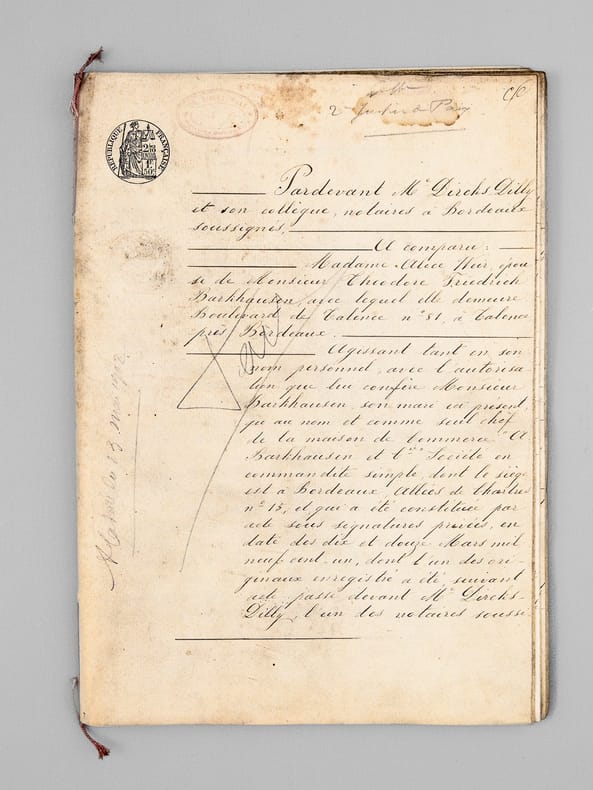 C/C
2
REPUBLIQUE FRANÇAISE
Pardevant Me Dircks-Dilly
et son collègue, notaires à Bordeaux
soussignés,
A comparu :
Madame Alice Weir, épou
se de Monsieur Théodore Friedrich
Barkhausen avec lequel elle demeure
Boulevard de Talence n° 81, à Talence
près Bordeaux.
Agissant tant en son
nom personnel, avec l'autorisa
tion que lui confère Monsieur
Barkhausen, son mari ici présent,
qu'au nom et comme seul chef
de la maison de Commerce "A
Barkhausen et Cie" Société en
commandite simple, dont le siège
est à Bordeaux, Allées de Chartres
n° 15, et qui a été constituée par
acte sous signatures privées, en
date des dix et douze Mars mil
neuf cent-un, dont l'un des ori-
ginaux enregistré a été, suivant
acte passé devant Me Dircks-
Dilly, l'un des notaires soussi-
1902